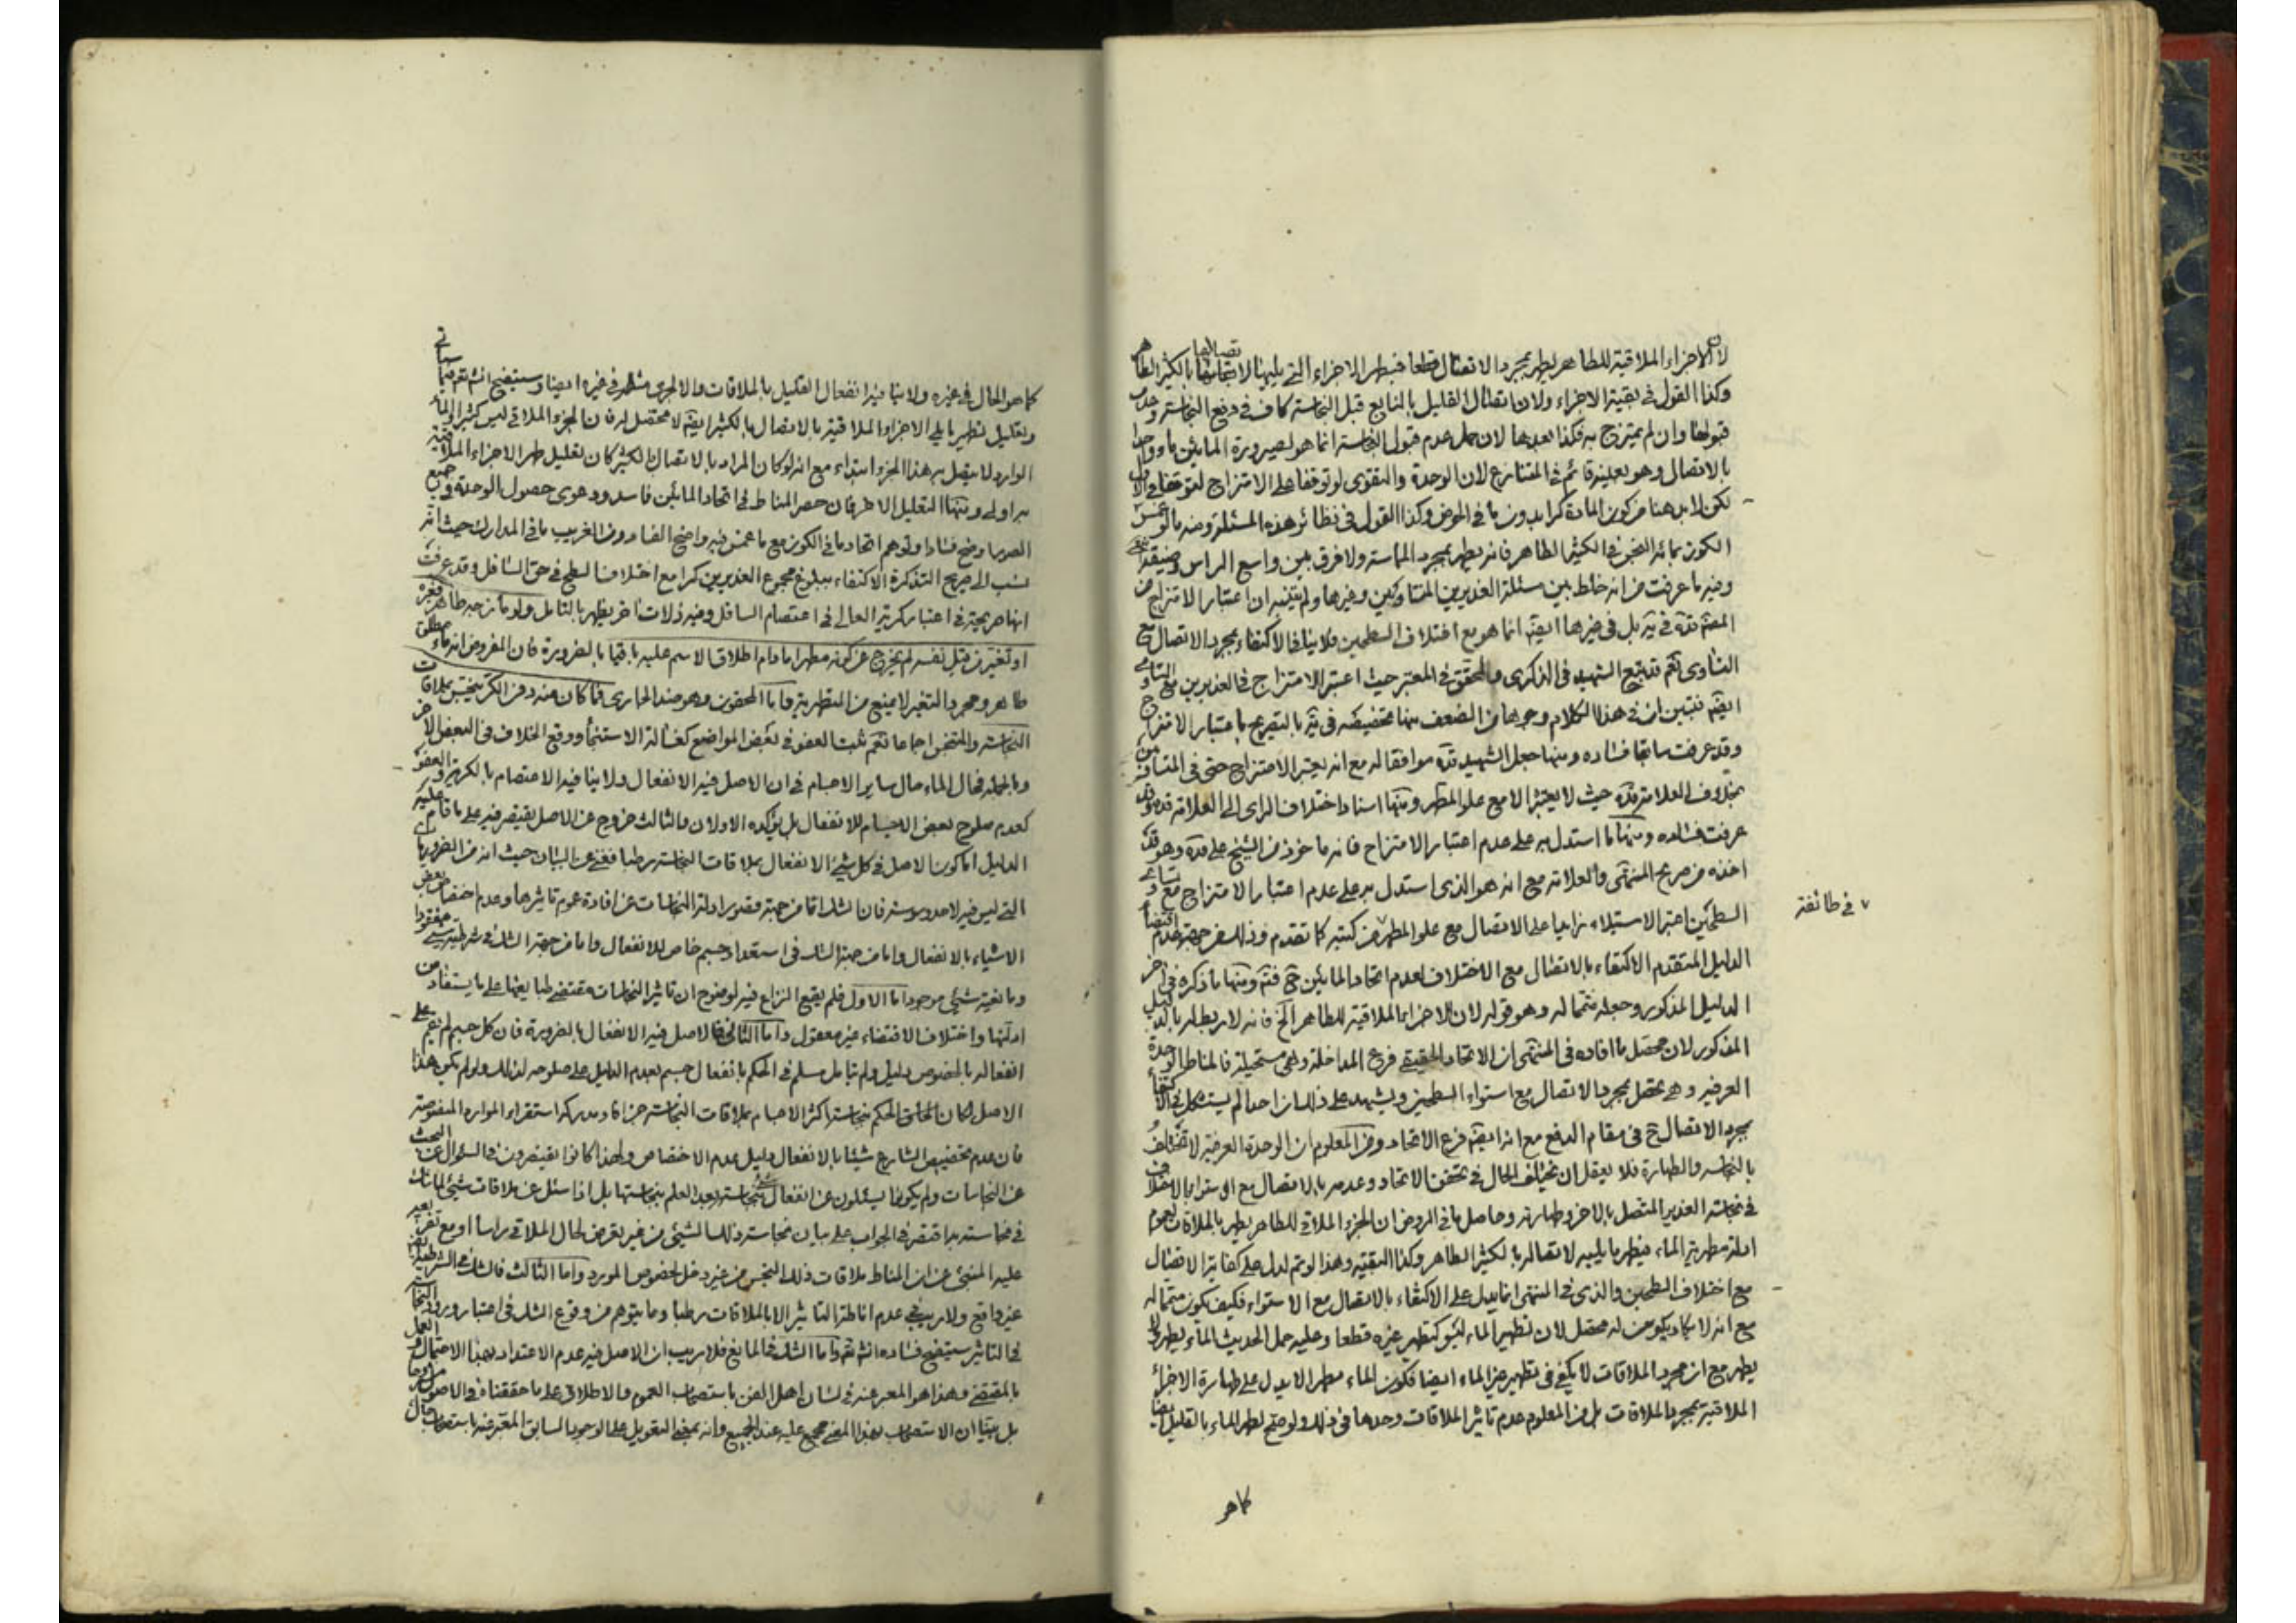 لان الاجزاء الملاقية للطاهر يطهر بمجرد الاتصال قطعا فيطهر الاجزاء التي يليها لاتصالها بالكثير الطاهر
وكذا القول في بقية الاجزاء ولان اتصال القليل بالنابع قبل النجاسة كاف في دفع النجاسة وعدم
قبولها وان لم يمتزج به فكذا بعدها لان عدم قبول النجاسة انما هو لصيرورة المائين ماء واحدا
بالاتصال وهو بعينه قائم في المتنازع لان الوحدة والتقوى لو توقفا على الامتزاج لتوقفا في الاول
لكن لابد هنا من كون المادة كرا بدون ما في الحوض وكذا القول في نظائر هذه المسئلة ومنه ما لو غمس
الكوز بمائه النجس في الكثير الطاهر فانه يطهر بمجرد المماسة ولا فرق بين واسع الراس وضيقه
وفيه ما عرفت من انه خلط بين مسئلة الغديرين المتساويين وغيرها ولم يتنبه ان اعتبار الامتزاج من
المحقق قده في بل في غيرها ايضا انما هو مع اختلاف السطحين فلا ينافي الاكتفاء بمجرد الاتصال مع
التساوي نعم تتبع الشهيد في الذكرى والمحقق في المعتبر حيث اعتبر الامتزاج في الغديرين مع التساوي
ايضا فتبين ان في هذا الكلام وجوها من الضعف منها تخصيصه في بالتصريح باعتبار الامتزاج
وقد عرفت سابقا فساده ومنها جعل الشهيد قده موافقا له مع انه يعتبر الامتزاج حتى في
بخلاف العلامة قده حيث لا يعتبر الا مع علو المطهر ومنها اسناد اختلاف الراي الى العلامة قده وقد
عرفت فساده ومنها ما استدل به على عدم اعتبار الامتزاج فانه ماخوذ من الشيخ على قده وهو قد
اخذه من صريح المنتهى والعلامة مع انه هو الذي استدل به على عدم اعتبار الامتزاج مع تساوي
السطحين اعتبر الاستيلاء زايدا على الاتصال مع علو المطهر من كتبه كما تقدم وذلك من جهة عدم اقتضاء
في طائفة
الدليل المتقدم الاكتفاء بالاتصال مع الاختلاف لعدم اتحاد المائين ح ومنها ما ذكره في اخر
الدليل المذكور وجعله متمما له وهو قوله لان الاجزاء الملاقية للطاهر الخ فانه لا ربط له بالدليل
المذكور لان محصل ما افاده في المنتهى ان الاتحاد الحقيقي فرع المداخلة وهي مستحيلة فالمناط الوحدة
العرفية وهي تحصل بمجرد الاتصال مع استواء السطحين ويشهد على ذلك ان احدا لم يستشكل في الاكتفاء
بمجرد الاتصال ح في مقام الدفع مع انه ايضا فرع الاتحاد ومن المعلوم ان الوحدة العرفية لا تختلف
بالنجاسة والطهارة فلا يعقل ان يختلف الحال في تحقق الاتحاد وعدمه بالاتصال مع الاستواء
في نجاسة الغدير المتصل بالاخر وطهارته وحاصل ما في الروض ان الجزء الملاقي للطاهر يطهر بالملاقات لعموم
ادلة مطهرية الماء فيطهر ما يليه لاتصاله بالكثير الطاهر وكذا البقية وهذا لو تم لدل على كفاية الاتصال
مع اختلاف السطحين والذي في المنتهى انما يدل على الاكتفاء بالاتصال مع الاستواء فكيف يكون متمما له
مع انه لا يكاد يكون له محصل لان تطهير الماء ليس كتطهير غيره قطعا وعليه حمل الحديث الماء يطهر ولا
يطهر مع ان مجرد الملاقات لا يكفي في تطهير غير الماء ايضا فكون الماء مطهرا لا يدل على طهارة الاجزاء
الملاقية بمجرد الملاقات بل من المعلوم عدم تاثير الملاقات وحدها في ذلك ولو صح لطهر الماء بالقليل ايضا
كما هو
كما هو الحال في غيره ولا ينافيه انفعال القليل بالملاقات والا لجرى مثله في غيره ايضا وسيتضح انشاء الله تعالى فيما سياتي
وتعليل تطهير ما يلي الاجزاء الملاقية بالاتصال بالكثير ايضا لا محصل له فان الجزء الملاقي ليس كثيرا والماء
الوارد لا يتصل به هذا الجزء ابتداء مع انه لو كان المراد بالاتصال بالكثير كان تعليل طهر الاجزاء الملاقية
به اولى ومنها التعليل الاخر فان حصر المناط في اتحاد المائين فاسد ودعوى حصول الوحدة في جميع
الصور اوضح فسادا وتوهم اتحاد ما في الكوز مع ما غمس فيه واضح الفساد ومن الغريب ما في المدارك حيث انه
نسب الى صريح التذكرة الاكتفاء ببلوغ مجموع الغديرين كرا مع اختلاف السطح في حق السافل وقد عرفت
انها صريحة في اعتبار كرية العالي في اعتصام السافل وفيه زلات اخر يظهر بالتامل ولو مازجه طاهر فغيره
او تغير من قبل نفسه لم يخرج عن كونه مطهرا مادام اطلاق الاسم عليه باقيا بالضرورة فان المفروض انه ماء مطلق
طاهر ومجرد التغير لا يمنع من التطهير به واما المحقون وهو ضد الجاري فما كان منه دون الكر ينجس بملاقات
النجاسة والمتنجس اجماعا نعم ثبت العفو في بعض المواضع كغسالة الاستنجاء ووقع الخلاف في البعض الاخر
وبالجملة فحال الماء حال ساير الاجسام في ان الاصل فيه الانفعال ولا ينافيه الاعتصام بالكرية والعفو
كعدم صلوح بعض الاجسام للانفعال بل يؤكده الاولان والثالث خروج عن الاصل يقتصر فيه على ما قام عليه
الدليل اما كون الاصل في كل شيء الانفعال بملاقات النجاسة رطبا فغني عن البيان حيث انه من الضروريات
التي ليس فيه لاحد وسوسة فان الشك اما من جهة قصور ادلة النجاسات عن افادة عموم تاثيرها وعدم اختصاص بعض
الاشياء بالانفعال واما من جهة الشك في استعداد جسم خاص للانفعال واما من جهة الشك في شرطية شيء مفقود
ومانعية شيء موجود اما الاول فلم يقع النزاع فيه لوضوح ان تاثير النجاسات مقتضى طبايعها على ما يستفاد من
ادلتها واختلاف الاقتضاء غير معقول واما الثاني فالاصل فيه الانفعال بالضرورة فان كل جسم لم يقم على
انفعاله بالخصوص دليل ولم يتامل مسلم في الحكم بانفعال جسم بعدم الدليل على صلوحه لذلك ولو لم يكن هذا
الاصل لكان الحكم بنجاسة اكثر الاجسام بملاقات النجاسة جزافا ومدركه استقراء الموارد المنصوصة
فان عدم تخصيص الشارع شيئا بالانفعال دليل عدم الاختصاص ولهذا كانوا يقتصرون في السؤال عن البحث
عن النجاسات ولم يكونوا يسئلون عن انفعال شيء بنجاسة بعد العلم بنجاستها بل اذا سئل عن ملاقات شيء لما شك
في نجاسته اقتصر في الجواب على بيان نجاسة ذلك الشيء من غير تعرض لحال الملاقي راسا او مع تفريعه
عليه المنبئ عن ان المناط ملاقات ذلك النجس من غير دخل لخصوص المورد واما الثالث فالشك في الشرطية ايضا
غير واقع ولا ريب في عدم اناطة التاثير الا بالملاقات رطبا وما يتوهم من وقوع الشك في اعتبار ورود النجاسة
في التاثير سيتضح فساده انشاء الله واما الشك في المانع فلا ريب ان الاصل فيه عدم الاعتداد بهذا الاحتمال والعمل
بالمقتضي وهذا هو المعبر عنه في لسان اهل الفن باستصحاب العموم والاطلاق على ما حققناه في الاصول
بل بينا ان الاستصحاب بهذا المعنى مجمع عليه عند الجميع وانه بمعنى التعويل على الوجود السابق المعبر عنه باستصحاب حال